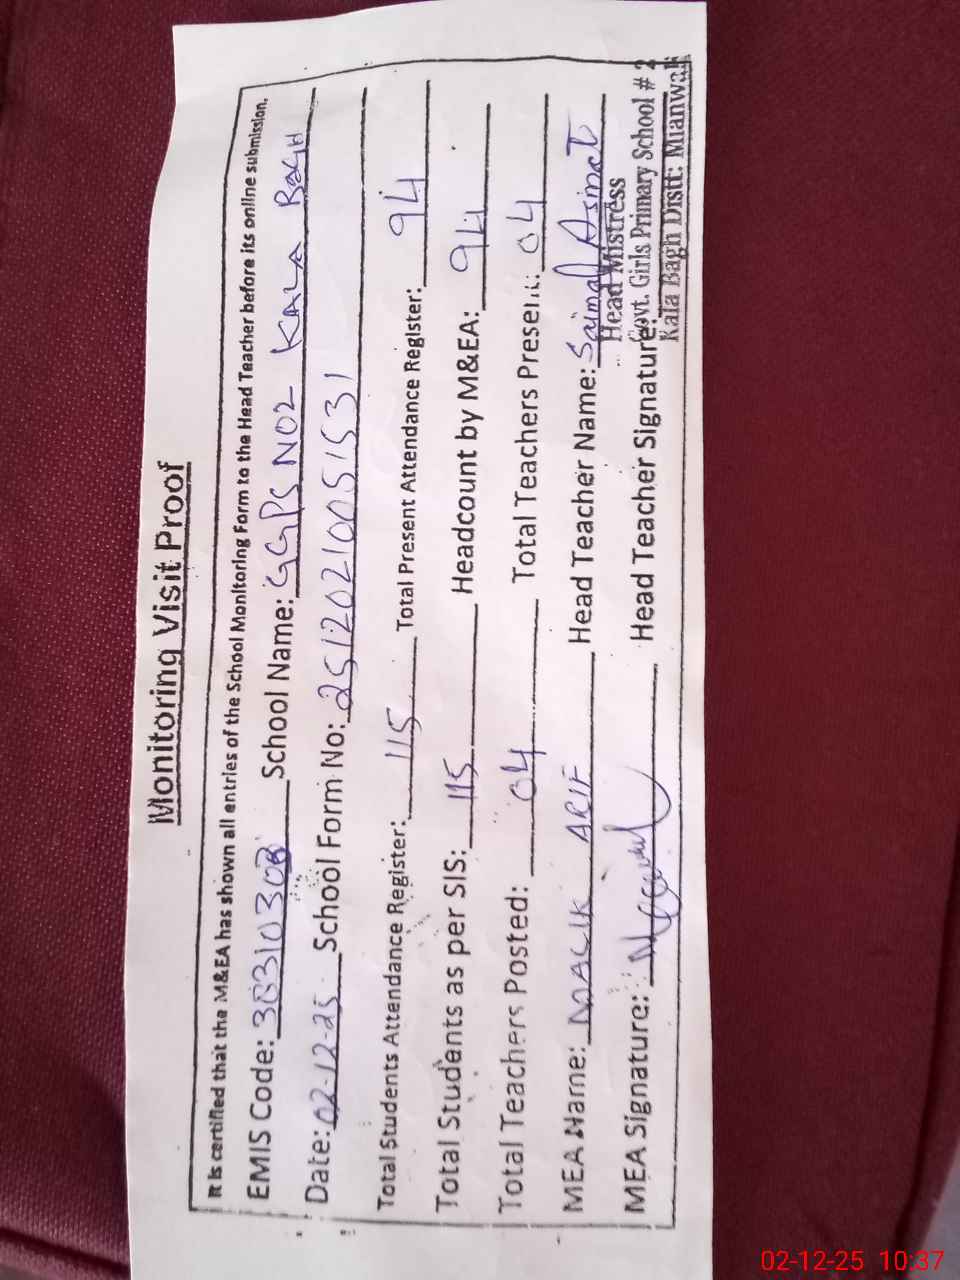 Monitoring Visit Proof
It is certified that the M&EA has shown all entries of the School Monitoring Form to the Head Teacher before its online submission.
EMIS Code: 38310308 School Name: GGPS NO2 KALA BAGH
Date: 02-12-25 School Form No: 25120210051531
Total Students Attendance Register: 115 Total Present Attendance Register: 94
Total Students as per SIS: 115 Headcount by M&EA: 94
Total Teachers Posted: 04 Total Teachers Present: 04
MEA Name: MALIK ARIF Head Teacher Name: Saimal Asmat
Head Mistress
MEA Signature: Head Teacher Signature:
Govt. Girls Primary School # 2
Kala Bagh Distt: Mianwali
02-12-25 10:37